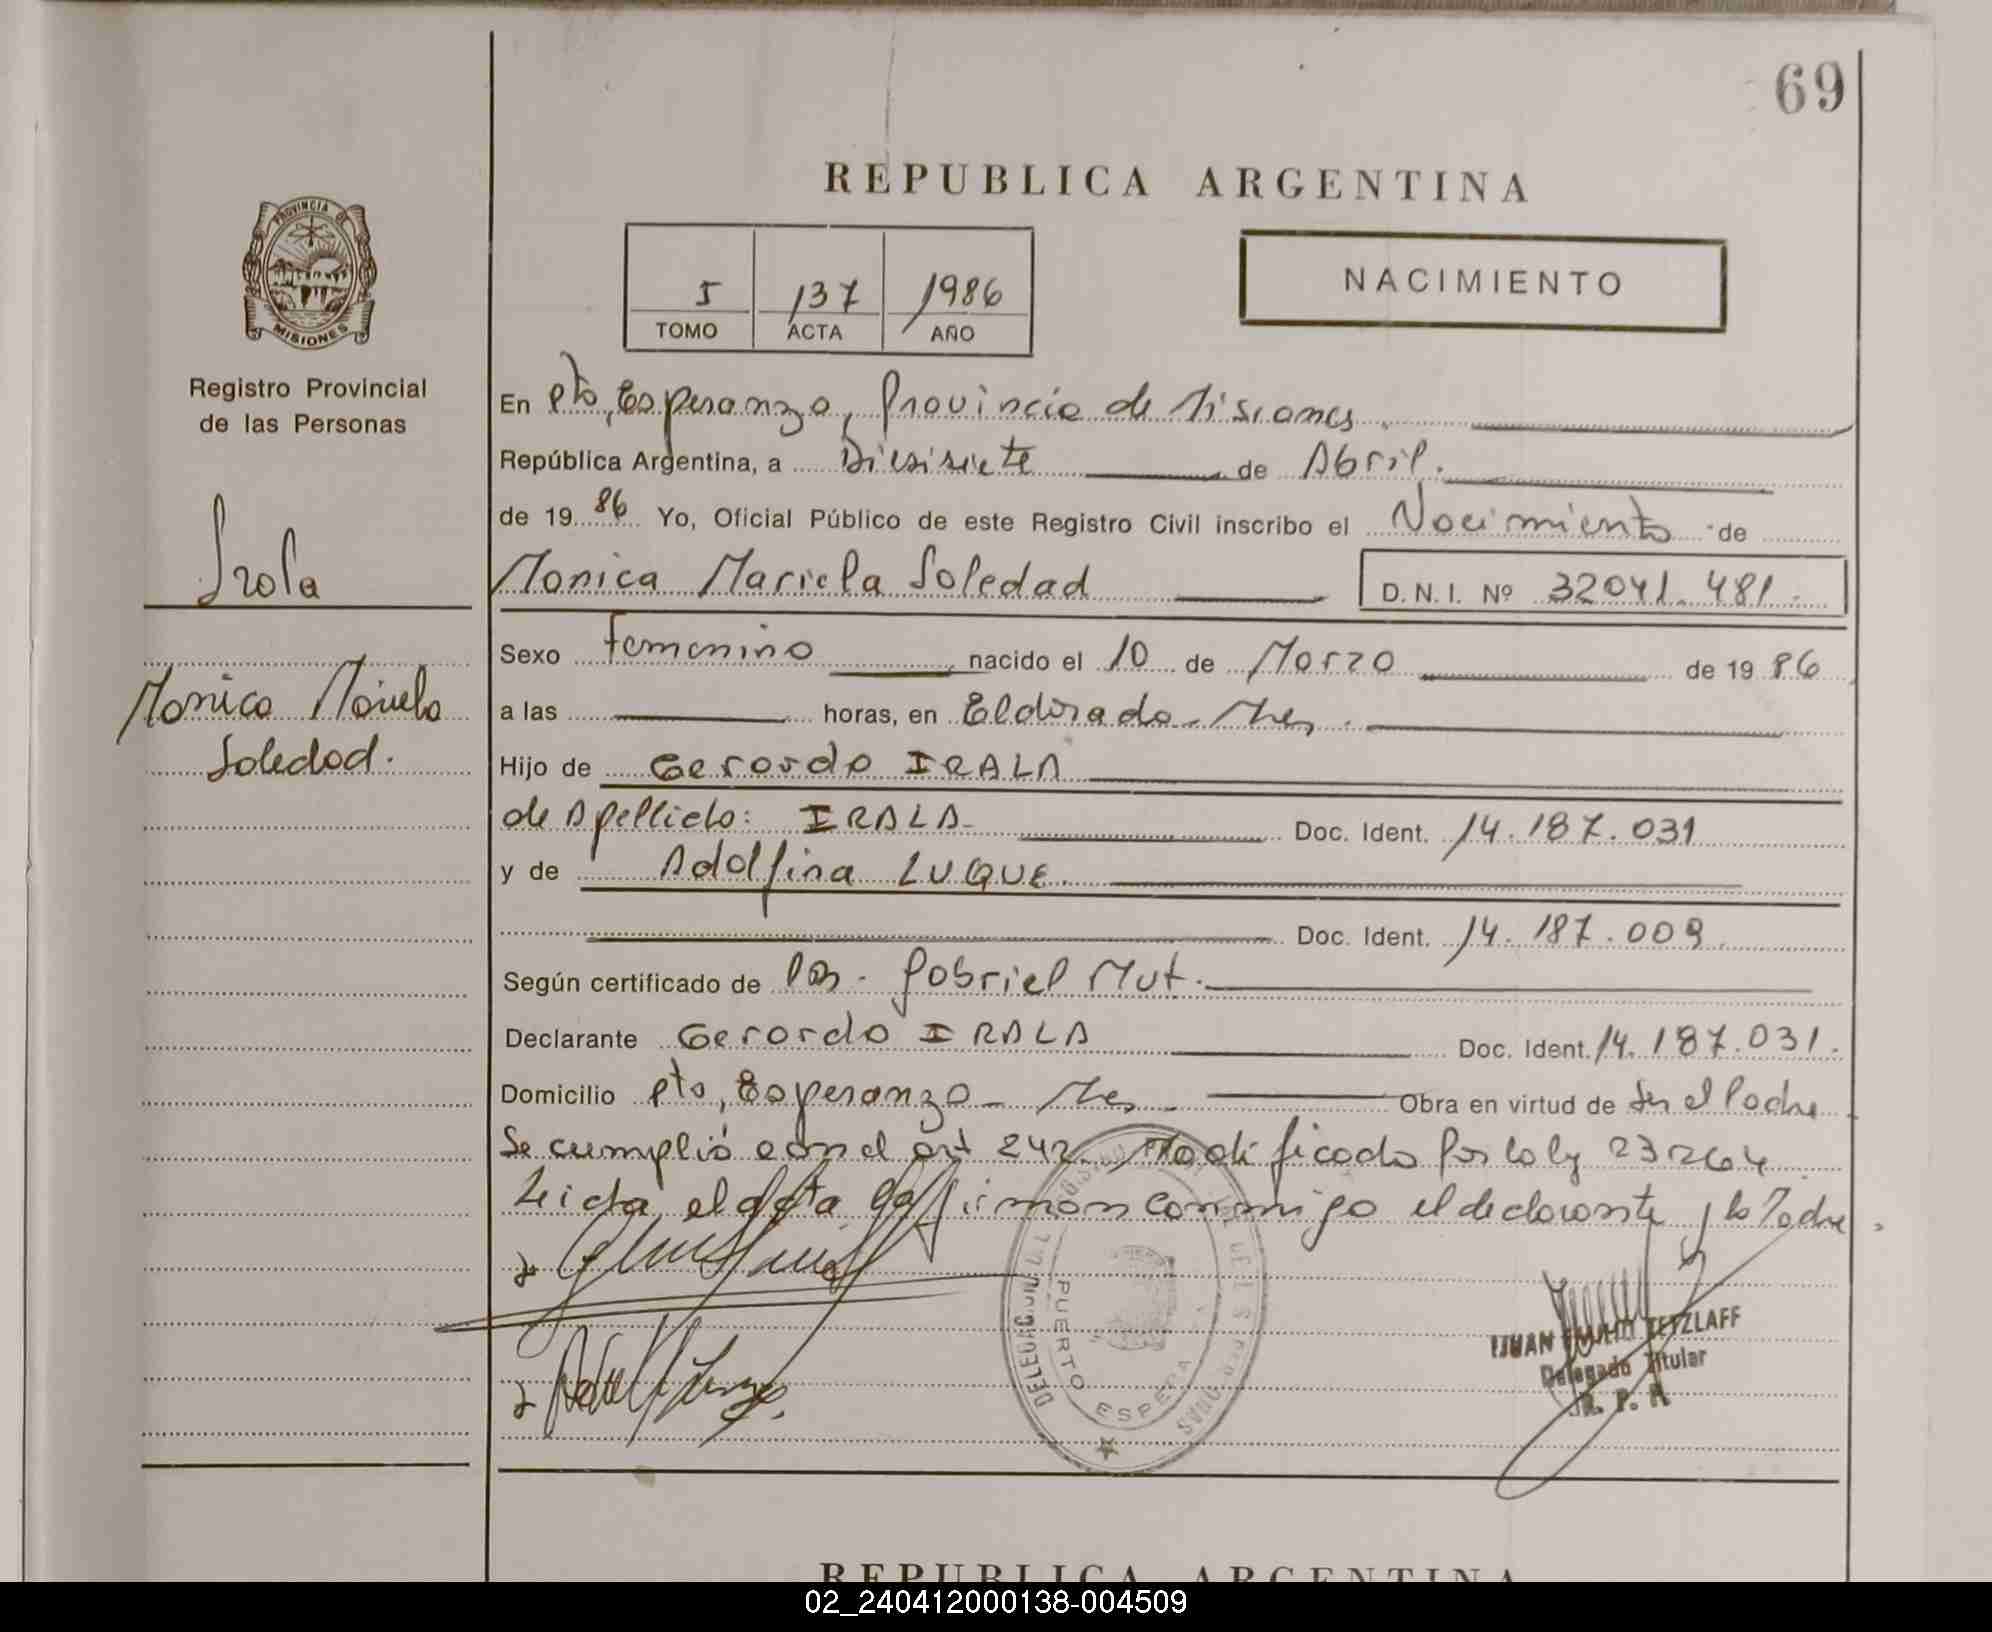 69
REPUBLICA ARGENTINA
PROVINCIA DE
MISIONES
Registro Provincial
de las Personas
5 137 1986
TOMO ACTA AÑO
NACIMIENTO
En Pto, Esperanza, Provincia de Misiones
República Argentina, a Diesisiete de Abril.
de 1986 Yo, Oficial Público de este Registro Civil inscribo el Nacimiento de
Irala
Monica Mariela Soledad D.N.I. Nº 32041.481.
Sexo Femenino nacido el 10 de Marzo de 1986
Monica Mariela
Soledad.
a las horas, en Eldorado - Mnes.
Hijo de Gerardo IRALA
de Apellido: IRALA Doc. Ident. 14.187.031
y de Adolfina LUQUE.
Doc. Ident. 14.187.009
Según certificado de Gabriel Mut.
Declarante Gerardo IRALA Doc. Ident. 14.187.031.
Domicilio Pto, Esperanza - Mnes. Obra en virtud de Ser el Padre
Se cumplió con el art 242. Modificado por la ley 23264
Leida el acta la firman conmigo el declarante y la Madre.
PUERTO ESPERA
JUAN EMILIO TETZLAFF
Delegado Titular
R. P. P.
REPUBLICA ARGENTINA
02_240412000138-004509